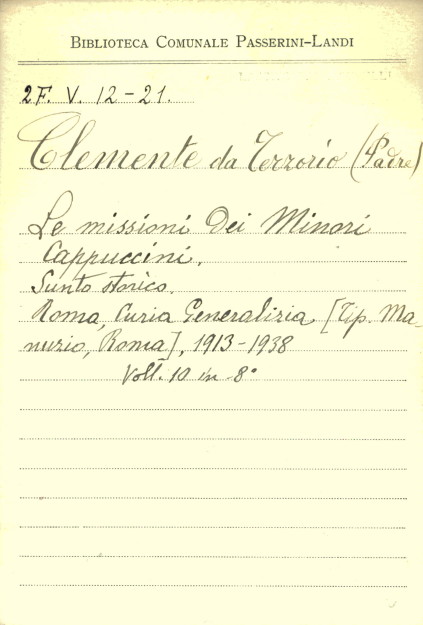 BIBLIOTECA COMUNALE PASSERINI-LANDI
2F. V. 12-21.
Clemente da Terzorio (Padre)
Le missioni dei Minori
Cappuccini.
Sunto storico.
Roma, Curia Generalizia [Tip. Ma-
nuzio, Roma], 1913-1938
Voll. 10 in -8°